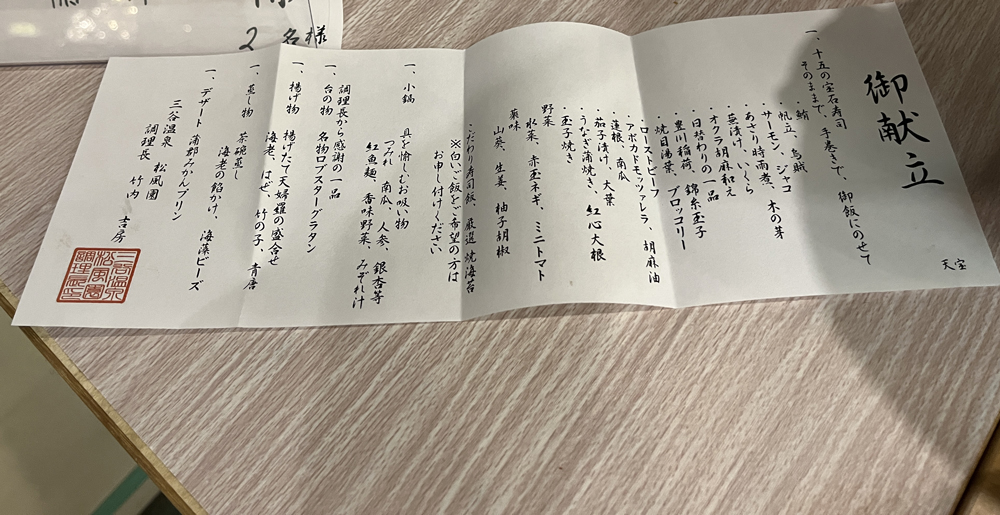 2名様
御献立
天宝
一、十五の宝石寿司
そのままで、手巻きで、御飯にのせて
・鮪、烏賊
・帆立、
・サーモン、ジャコ
・あさり時雨煮、木の芽
・蕪漬け、いくら
・オクラ胡麻和え
・日替わりの一品
・豊川稲荷、錦糸玉子
・焼目湯葉、ブロッコリー
・ローストビーフ
・アボカドモッツァレラ、胡麻油
・蓮根、南瓜、
・茄子漬け、大葉
・うなぎ蒲焼き、紅心大根
・玉子焼き
野菜
水菜、赤玉ネギ、ミニトマト
薬味
山葵、生姜、柚子胡椒
・こだわり寿司飯、厳選焼海苔
※白いご飯をご希望の方は
お申し付けください
一、小鍋　具を愉しむお吸い物
つみれ、南瓜、人参、銀杏等
紅魚麺、香味野菜、みぞれ汁
調理長から感謝の一品
一、台の物　名物ロブスターグラタン
一、揚げ物　揚げたて天婦羅の盛合せ
海老、はぜ、竹の子、青唐
一、蒸し物　茶碗蒸し
海老の餡かけ、海藻ビーズ
一、デザート　蒲郡みかんプリン
三谷温泉　松風園
調理長　竹内　吉房
三谷温泉
松風園
調理長之印